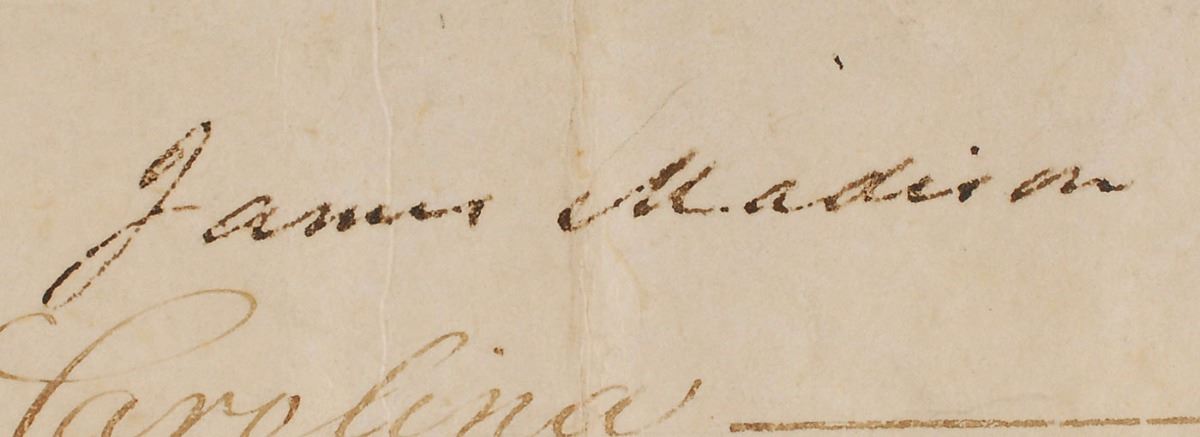 James Madison
Carolina